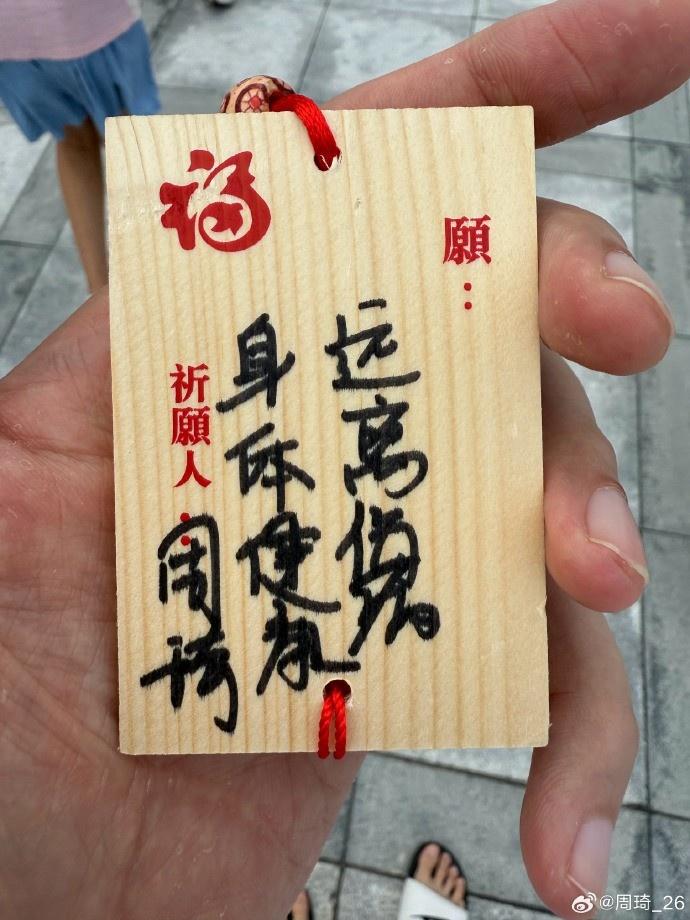 願：
远离伤病
身体健康
福
祈願人：
周琦
@周琦_26